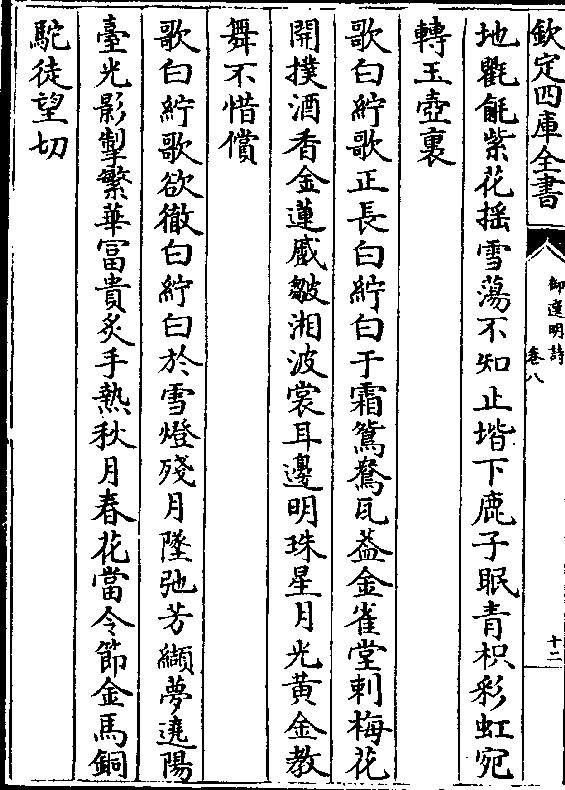 欽定四庫全書
御選明詩
卷八
十二
地氍毹紫花揺雪蕩不知止堦下鹿子眠青枳彩虹宛
轉玉壺裏
歌白紵歌正長白紵白于霜鴛鴦瓦葢金雀堂刺梅花
開撲酒香金蓮蹙皺湘波裳耳邊明珠星月光黄金教
舞不惜償
歌白紵歌欲徹白紵白於雪燈殘月墜弛芳纈夢遶陽
臺光影掣繁華冨貴炙手熱秋月春花當令節金馬銅
駝徒望切